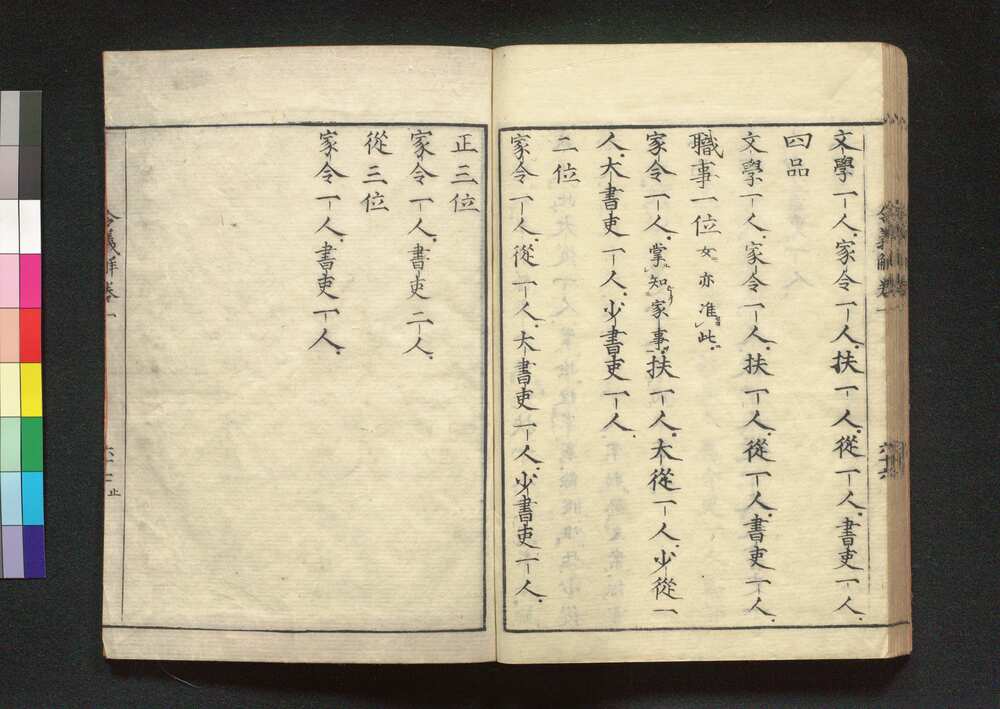 文學一人。家令一人。扶一人。從一人。書吏一人。
四品
文學一人。家令一人。扶一人。從一人。書吏一人。
職事一位女亦准此。
家令一人。掌知家事。扶一人。大從一人。少從一
人。大書吏一人。少書吏一人。
二位
家令一人。從一人。大書吏一人。少書吏一人。
正三位
家令一人。書吏二人。
從三位
家令一人。書吏一人。
令義解卷一